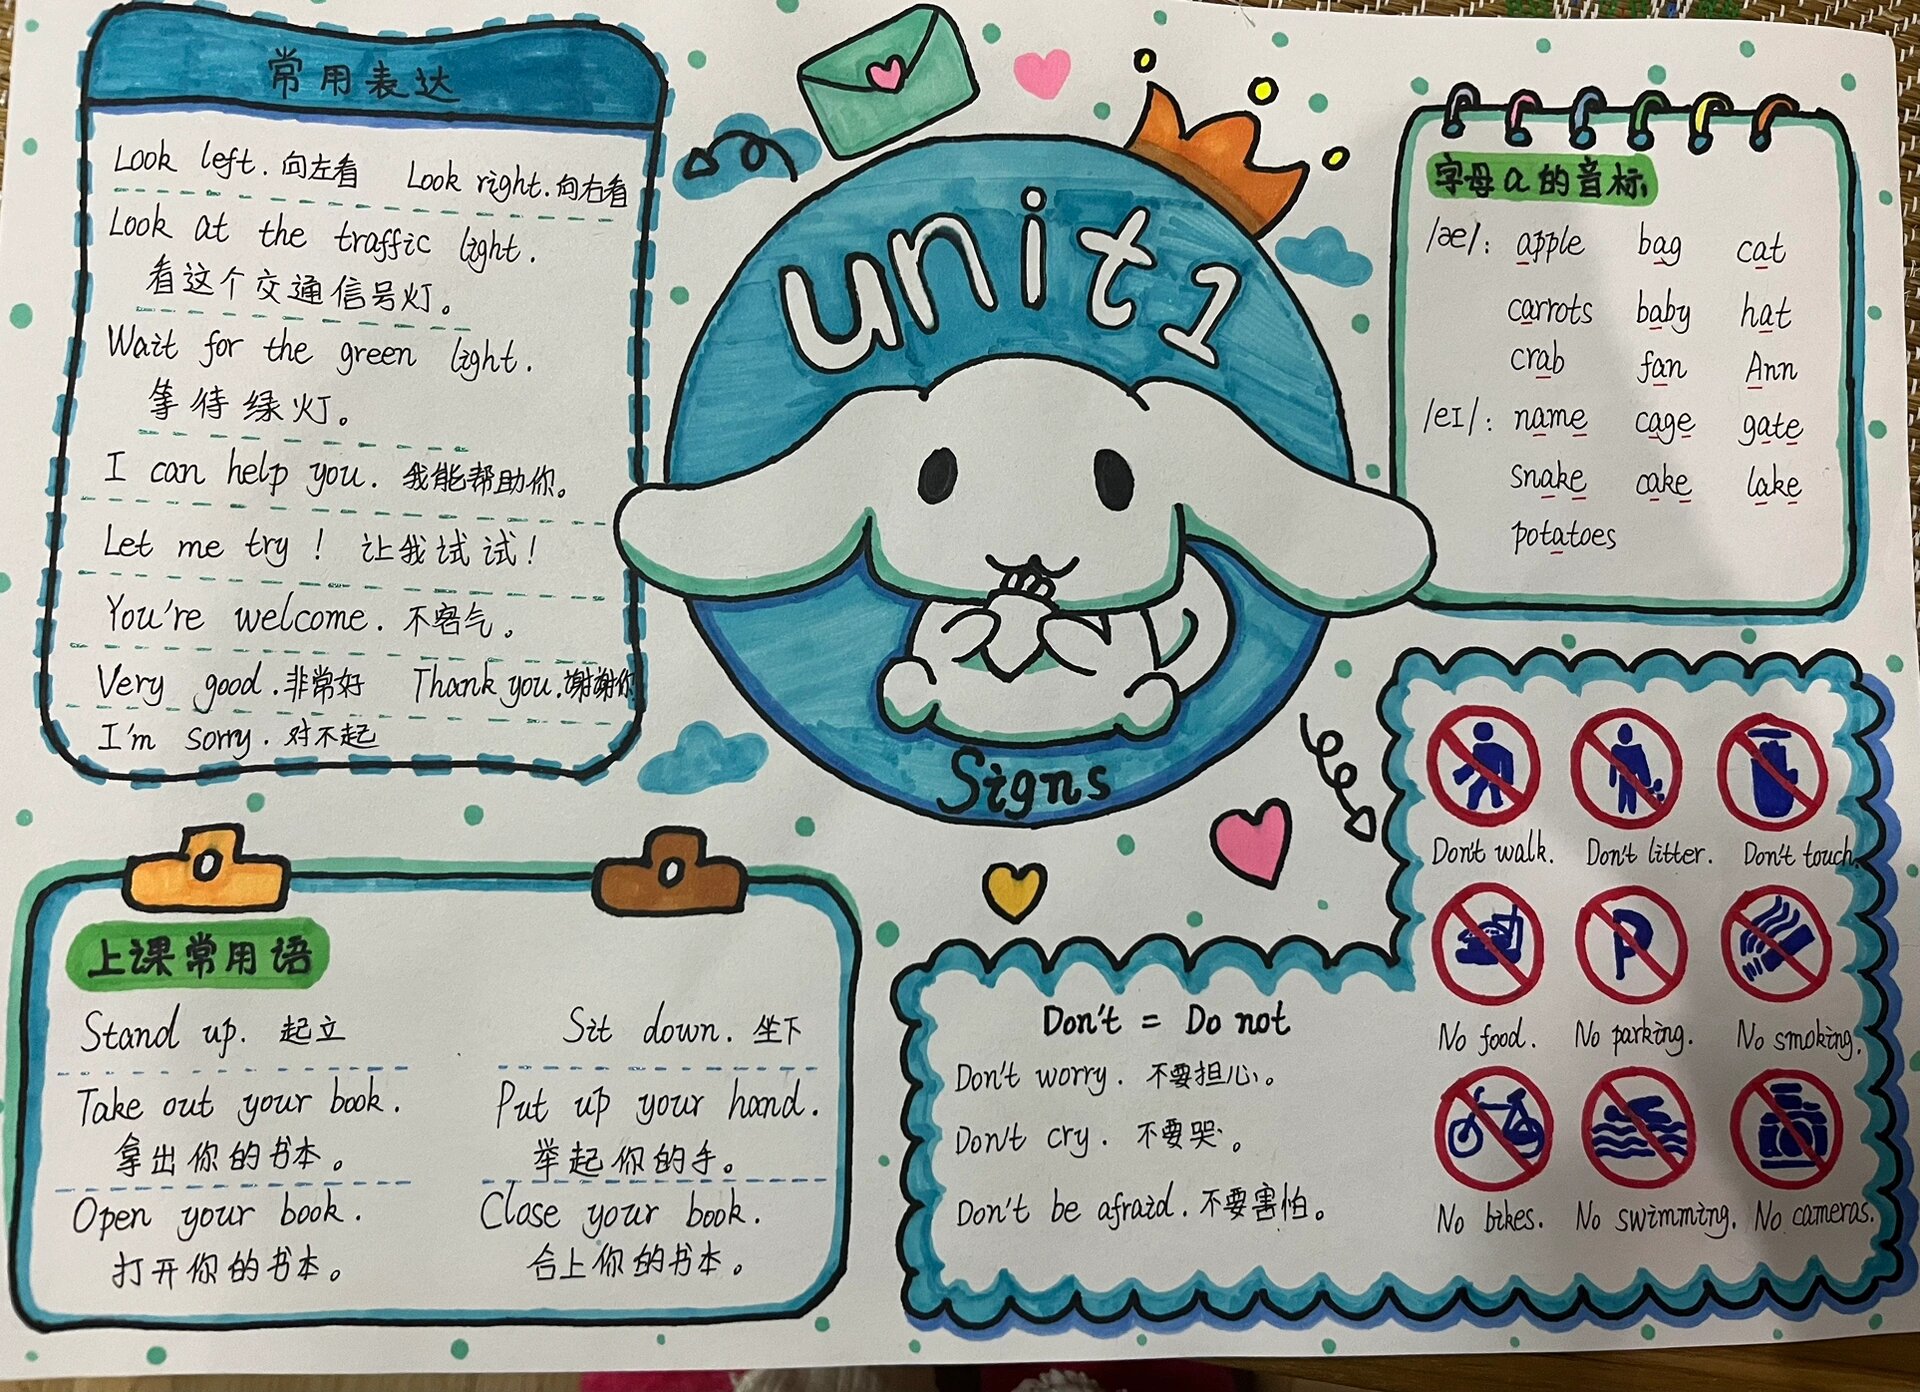 常用表达
Look left. 向左看 Look right. 向右看
Look at the traffic light.
看这个交通信号灯。
Wait for the green light.
等待绿灯。
I can help you. 我能帮助你。
Let me try! 让我试试!
You're welcome. 不客气。
Very good. 非常好 Thank you. 谢谢你
I'm sorry. 对不起
unit1
Signs
字母a的音标
/æ/: apple bag cat
carrots baby hat
crab fan Ann
/eɪ/: name cage gate
snake cake lake
potatoes
上课常用语
Stand up. 起立 Sit down. 坐下
Take out your book. Put up your hand.
拿出你的书本。 举起你的手。
Open your book. Close your book.
打开你的书本。 合上你的书本。
Don't = Do not
Don't worry. 不要担心。
Don't cry. 不要哭。
Don't be afraid. 不要害怕。
Don't walk. Don't litter. Don't touch.
P
No food. No parking. No smoking.
No bikes. No swimming. No cameras.